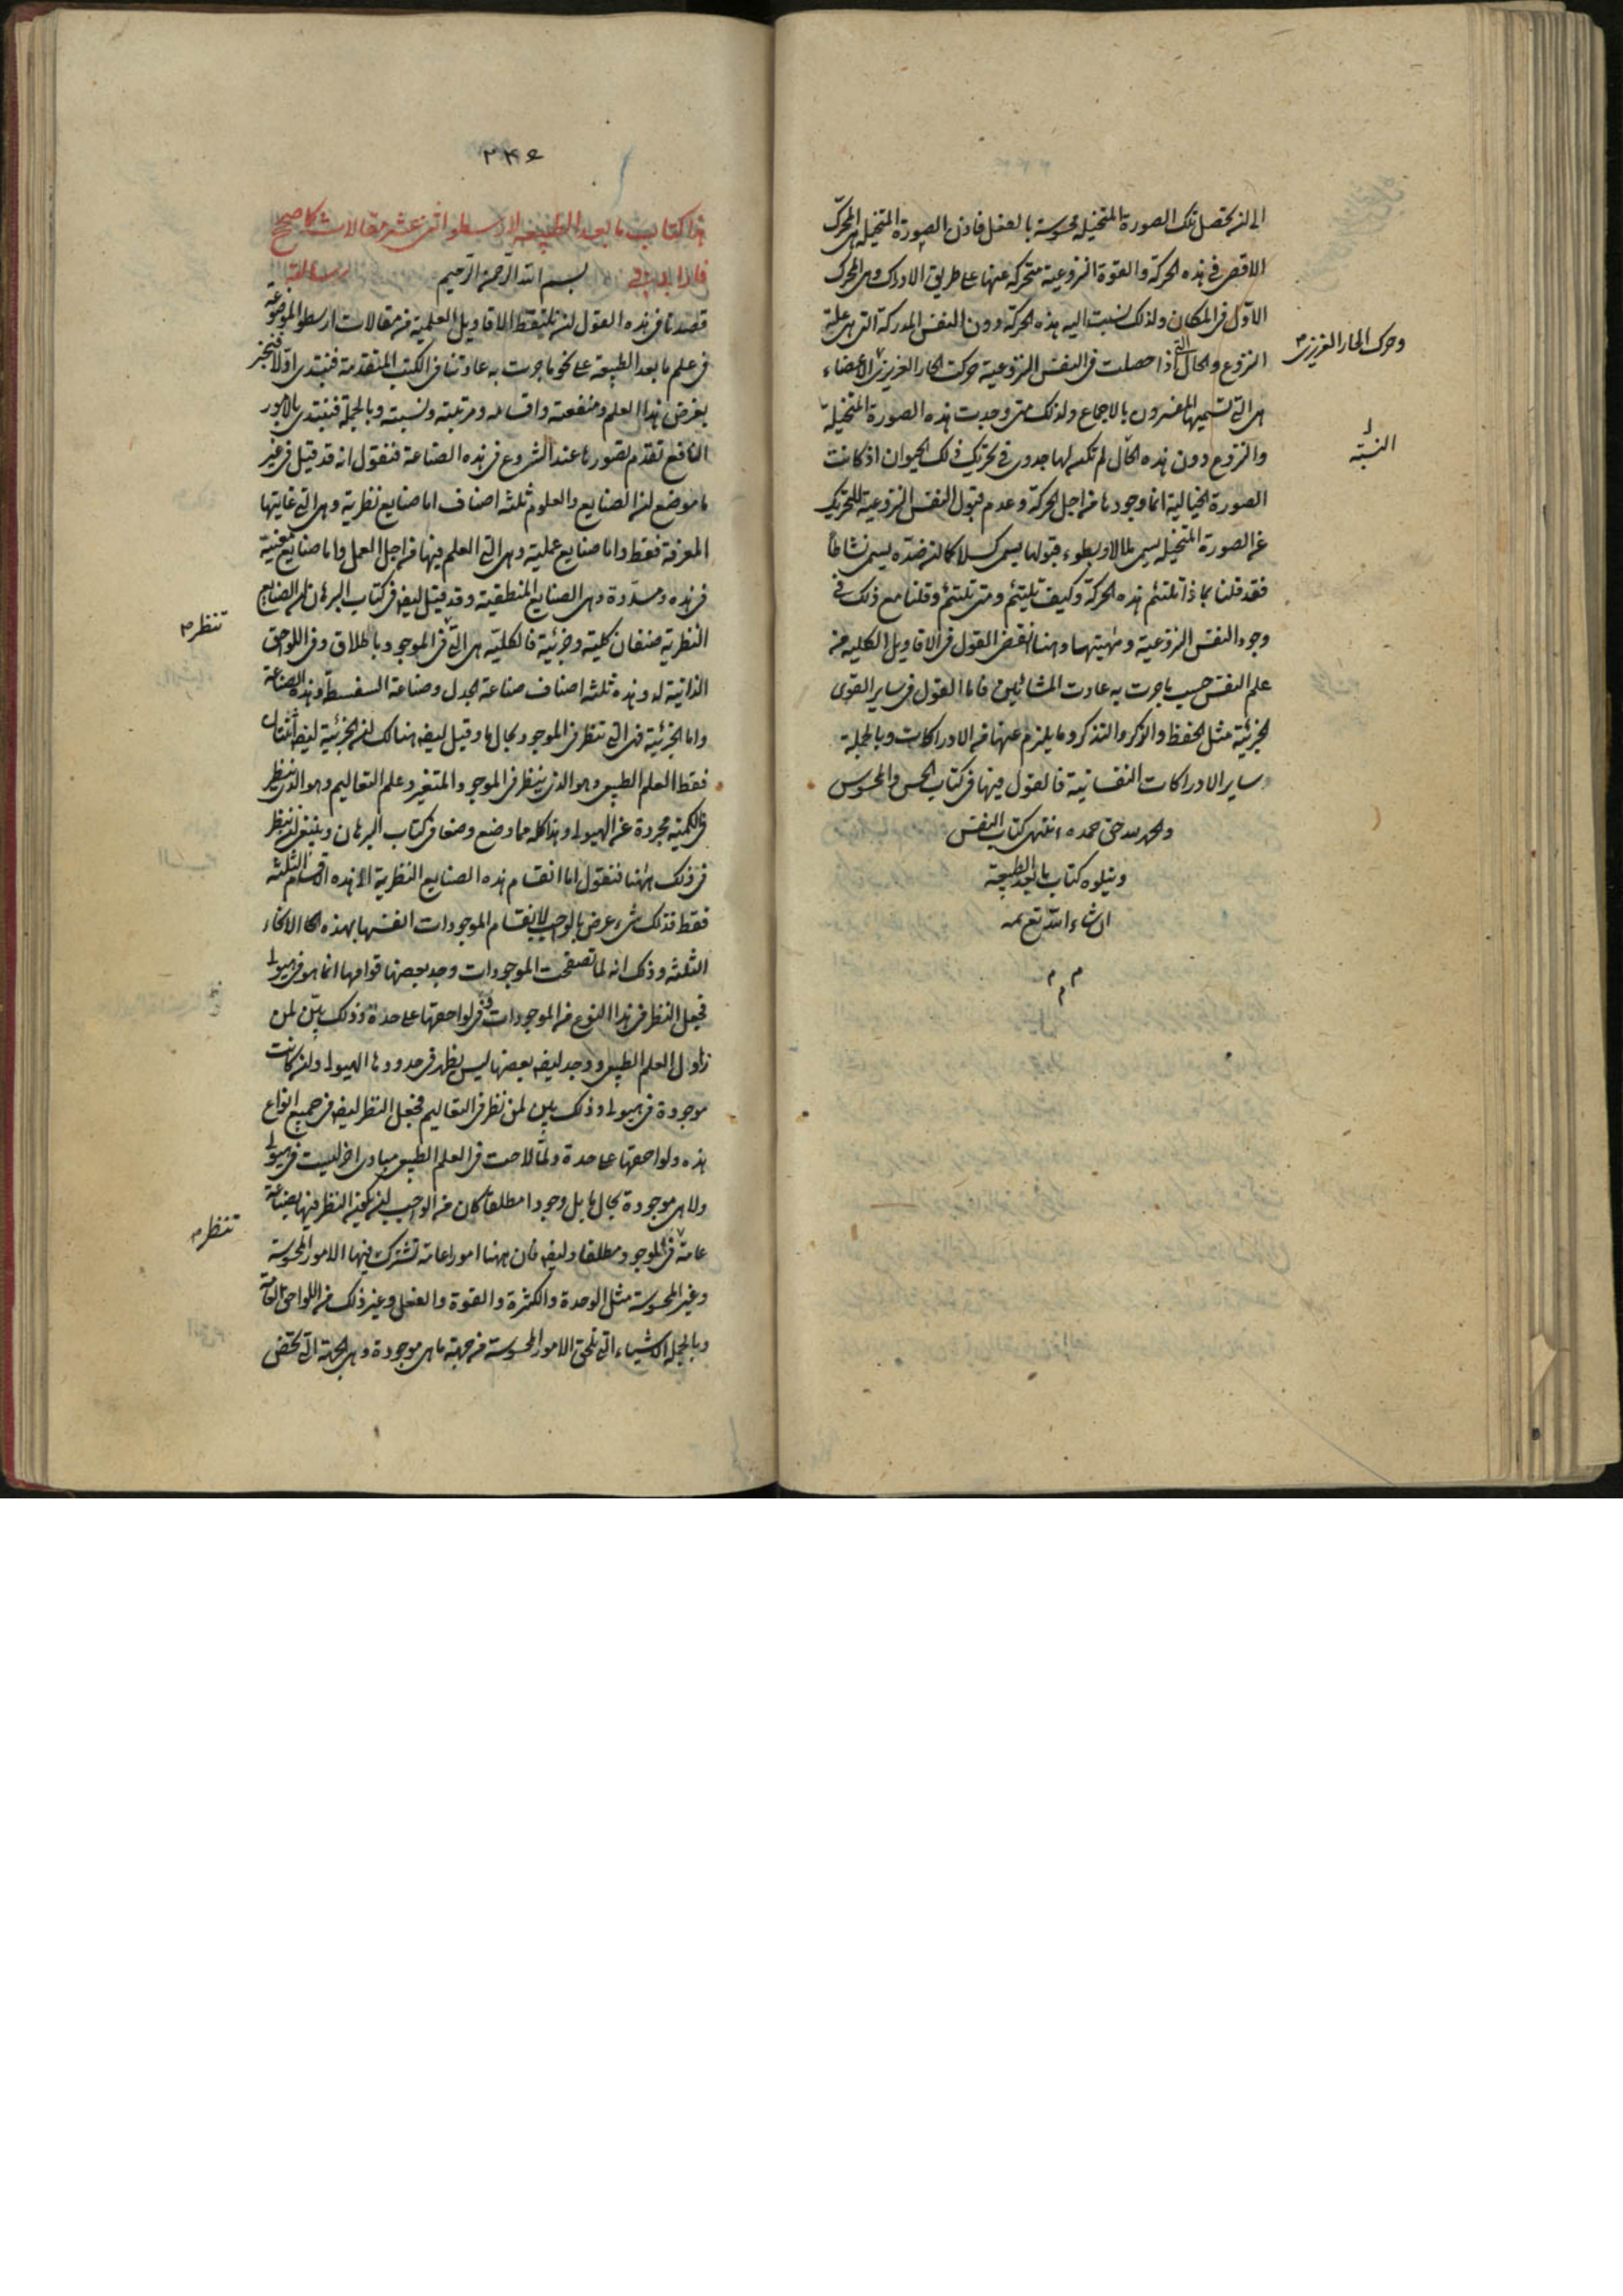 الى ان تحصل تلك الصورة المتخيلة محسوسة بالفعل فاذن الصورة المتخيلة هى المحرك
الاقصى فى هذه الحركة والقوة النزوعية متحركة عنها على طريق الادراك وهى المحرك
الاول فى المكان ولذلك نسبت اليه هذه الحركة دون النفس المدركة التى هى علة
النزوع والحال التى اذا حصلت فى النفس النزوعية حركت الحار الغريزى الاعضاء
وحرك الحار الغريزى
هى التى تسميها المفسرون بالاجماع ولذلك متى وجدت هذه الصورة المتخيلة
النسبة
والنزوع دون هذه الحال لم تكن لها جدوى فى تحريك ذلك الحيوان اذ كانت
الصورة الخيالية انما وجودها من اجل الحركة وعدم قبول النفس النزوعية للتحريك
عن الصورة المتخيلة يسمى ملالا وبطوء قبولها يسمى كسلا كما ان ضده يسمى نشاطا
فقد قلنا بماذا تلتئم هذه الحركة وكيف تلتئم ومتى تلتئم وقلنا مع ذلك فى
وجود النفس النزوعية وماهيتها وهنا انقضى القول فى الاقاويل الكلية من
علم النفس حسب ما جرت به عادت المشائين فاما القول فى ساير القوى
الجزئية مثل الحفظ والذكر والتذكر وما يلزم عنها من الادراكات وبالجملة
ساير الادراكات النفسانية فالقول فيها فى كتاب الحس والمحسوس
والحمد لله حق حمده انتهى كتاب النفس
ويتلوه كتاب ما بعد الطبيعة
ان شاء الله تع
م م م
۳۴۶
هذا كتاب ما بعد الطبيعة لارسطو اثنى عشر مقالات
بسم الله الرحمن الرحيم
قصدنا فى هذه القول ان نلتقط الاقاويل العلمية من مقالات ارسطو الموضوعة
فى علم ما بعد الطبيعة على نحو ما جرت به عادتنا فى الكتب المتقدمة فنبتدى اولا فنخبر
بغرض هذا العلم ومنفعته واقسامه ومرتبته ونسبته وبالجملة فنبتدى بالامور
النافع تقدم تصورها عند الشروع فى هذه الصناعة فنقول انه قد قيل فى غير
ما موضع ان الصنايع والعلوم ثلثة اصناف اما صنايع نظرية وهى التى غايتها
المعرفة فقط واما صنايع عملية وهى التى العلم فيها من اجل العمل واما صنايع معينة
فى هذه ومسددة وهى الصنايع المنطقية وقد قيل ايضا فى كتاب البرهان ان الصنايع
النظرية صنفان كلية وجزئية فالكلية هى التى فى الموجود باطلاق وفى اللواحق
تنظر
الذاتية له وهذه ثلثة اصناف صناعة الجدل وصناعة السفسطة وهذه الصناعة
واما الجزئية فهى التى تنظر فى الموجود بحال ما وقيل ايضا هنالك ان الجزئية ايضا اثنتان
فقط العلم الطبيعى وهو الذى ينظر فى الموجود المتغير وعلم التعاليم وهو الذى ينظر
فى الكمية مجردة عن الهيولى وهذا كله مما وضع وضعا فى كتاب البرهان وينبغى ان ننظر
فى ذلك ههنا فنقول اما انقسام هذه الصنايع النظرية الى هذه الاقسام الثلثة
فقط فذلك شىء عرض بالواجب لانقسام الموجودات انفسها بهذه الانحاء
الثلثة وذلك انه لما تصفحت الموجودات وجد بعضها قوامها انما هو فى هيولى
فجعل النظر فى هذا النوع من الموجودات وفى لواحقها على حدة وذلك بين لمن
زاول العلم الطبيعى ووجد ايضا بعضها ليس يظهر فى حدودها الهيولى وان كانت
موجودة فى هيولى وذلك بين لمن نظر فى التعاليم فجعل النظر ايضا فى جميع انواع
هذه ولواحقها على حدة ولما لاحت فى العلم الطبيعى مبادى اخر ليست فى هيولى
ولا هى موجودة بحال ما بل وجودا مطلقا كان من الواجب ان يكون النظر فيها لصناعة
عامة فى الموجود مطلقا وايضا فان ههنا امورا عامة تشترك فيها الامور المحسوسة
تنظر
وغير المحسوسة مثل الوحدة والكثرة والقوة والفعل وغير ذلك من اللواحق العامة
وبالجملة الاشياء التى تلحق الامور المحسوسة من جهة ما هى موجودة وهى الجهة التى تختص